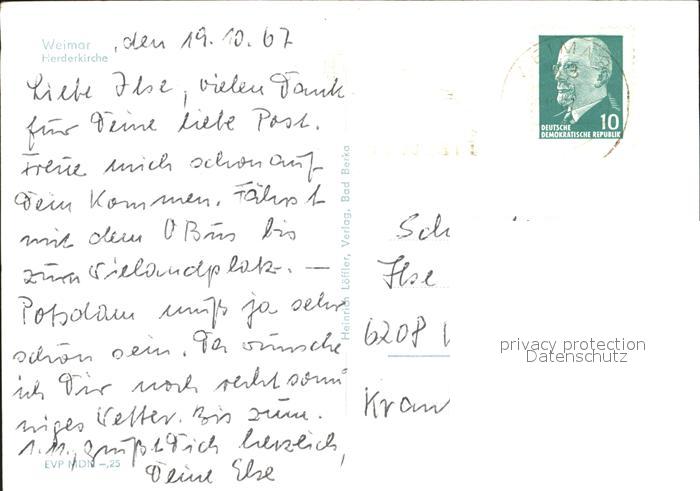 Weimar
Herderkirche
, den 19.10.67
Liebe Ilse, vielen Dank
für Deine liebe Post.
Freue mich schon auf
Dein Kommen. Fährst
mit dem O Bus bis
zum Wielandplatz. —
Potsdam muß ja sehr
schön sein. Da wünsche
ich Dir noch recht sonn
niges Wetter. Bis zum
1.11. grüßt Dich herzlich,
Deine Else
EVP MDN -,25
Heinrich Löffler, Verlag, Bad Berka
WEIMAR
10
DEUTSCHE
DEMOKRATISCHE REPUBLIK
Sch
Ilse
6208
Kran
privacy protection
Datenschutz